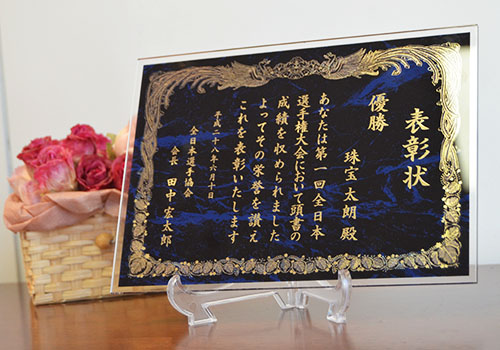 表彰状
優勝
珠宝太朗殿
あなたは第一回全日本
選手権大会において頭書の
成績を収められました
よってその栄誉を讃え
これを表彰いたします
平成二十八年六月十日
全日本選手協会
会長 田中宏太郎